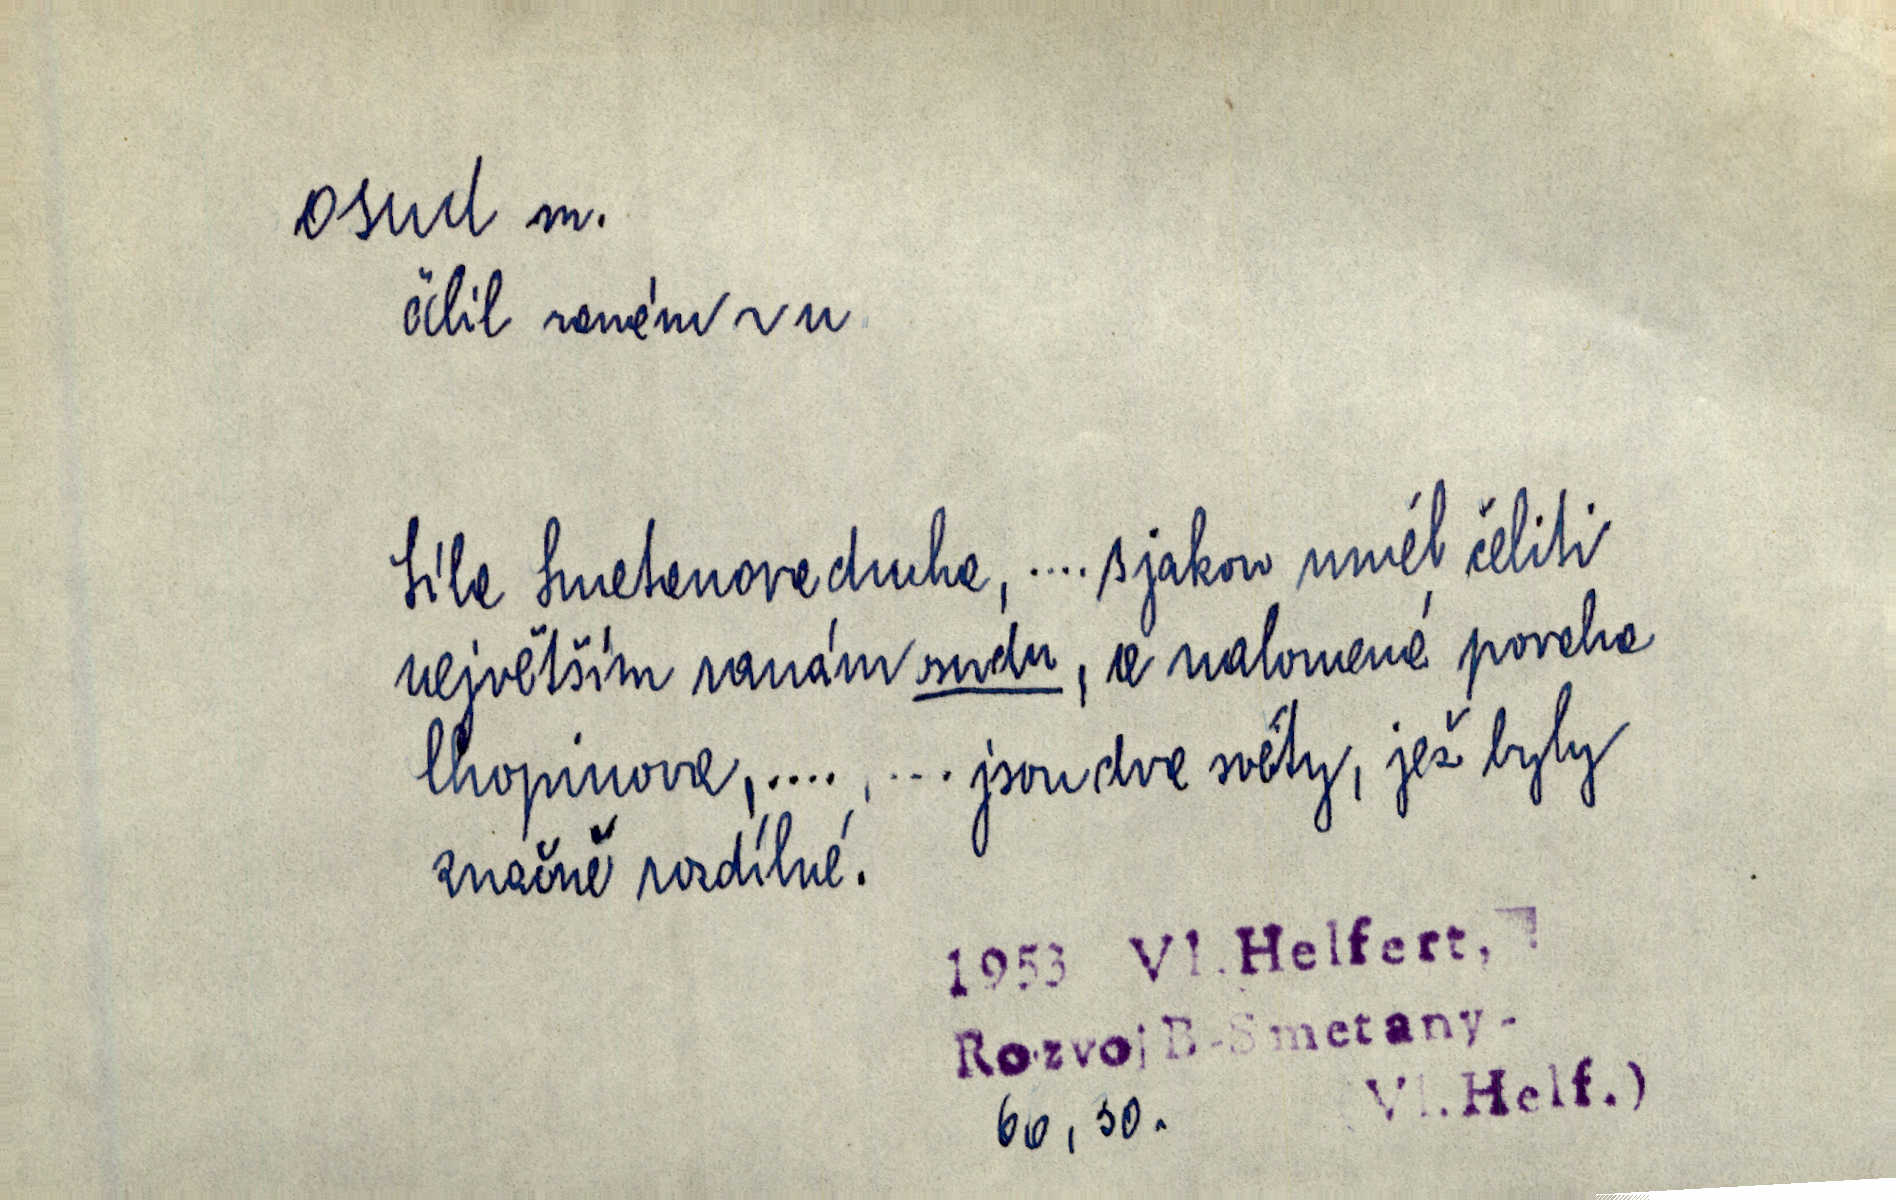 osud m.
čelil ranám ~u
Síla Smetanova ducha, .... s jakou uměl čeliti
největším ranám osudu, a nalomená povaha
Chopinova, ...., .... jsou dva světy, jež byly
značně rozdílné.
1953 Vl. Helfert,
Rozvoj B-Smetany-
Vl. Helf.)
60, 30.